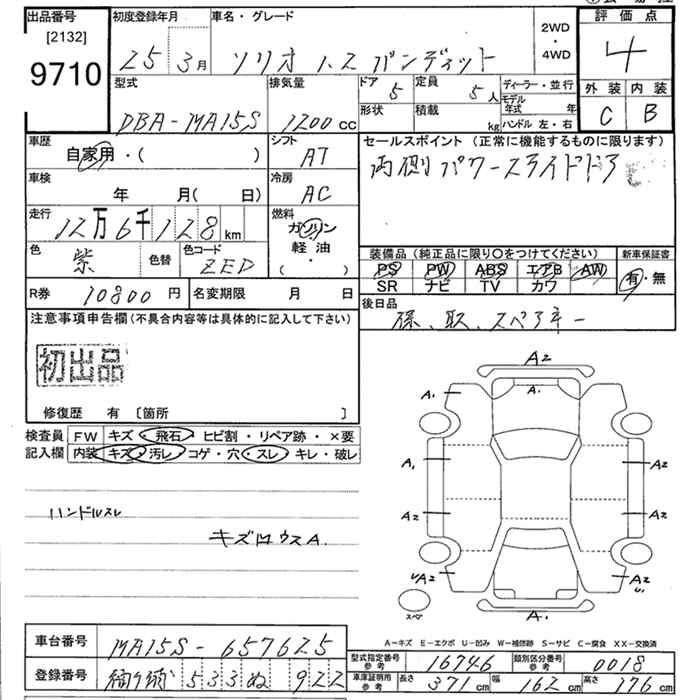 出品番号
[2132]
9710
初度登録年月
25 3月
車名・グレード
ソリオ ハス バンディット
2WD
・
4WD
評価点
4
外装 内装
C B
型式
DBA-MA15S
排気量
1200 cc
ドア 5
定員 5人
形状
積載 kg
ディーラー・並行
モデル年式 年
ハンドル 左・右
車歴
自家用・( )
シフト
AT
セールスポイント (正常に機能するものに限ります)
両側パワースライドドア
車検
年 月( 日)
冷房
AC
走行
12万6千128km
燃料
ガソリン
軽油
( ・ )
色
紫
色替
色コード
ZED
装備品 (純正品に限り〇をつけてください)
PS PW ABS エアB AW
SR ナビ TV カワ
新車保証書
有・無
R券 10800円
名変期限 月 日
後日品
保、取、スペアキー
注意事項申告欄(不具合内容等は具体的に記入して下さい)
初出品
修復歴 有 〔箇所 〕
検査員
記入欄
FW キズ・飛石・ヒビ割・リペア跡・×要
内装 キズ・汚レ・コゲ・穴・スレ・キレ・破レ
ハンドルスレ
キズロウスA.
A2
A.
A1
A1
A2
A2
A2
A2
A2
スペア
A.
A-キズ E-エクボ U-凹み W-補修跡 S-サビ C-腐食 XX-交換済
車台番号
MA15S-657625
登録番号
533ぬ922
型式指定番号
参考
16746
類別区分番号
参考
0018
車庫証明用
参考
長さ 371cm
幅 162cm
高さ 176cm